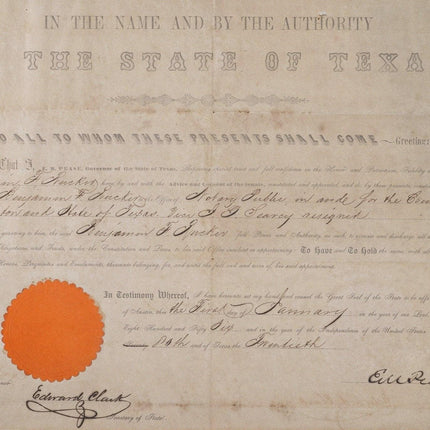 IN THE NAME AND BY THE AUTHORITY
THE STATE OF TEXA
O ALL TO WHOM THESE PRESENTS SHALL COME Greeting
That I, E. M. PEASE, Governor of the State of Texas, Reposing special trust and full confidence in the Honor and Patriotism, Fidelity
F. Tucker by and with the Advice and consent of the Senate constituted and appointed, and do by these presents
Benjamin F. Tucker Notary Public in and for the
and State of Texas, Vice J. G. Searcy resigned
giving to him, the said Benjamin F. Tucker full Power and Authority to execute and discharge all
under the Constitution and Laws to his said Office incident or appertaining To Have and To Hold the same
Honors, Perquisites and Emoluments thereunto belonging, for and until the full end and term of his said appointment.
In Testimony Whereof, I have hereunto set my hand and caused the Great Seal of the State to be
at Austin, this the First day of January in the year of our Lord
Eight Hundred and Fifty Six and in the year of the Independence of the United States
80th and of Texas the Twentieth
Edward Clark
Secretary of State
E M Pe